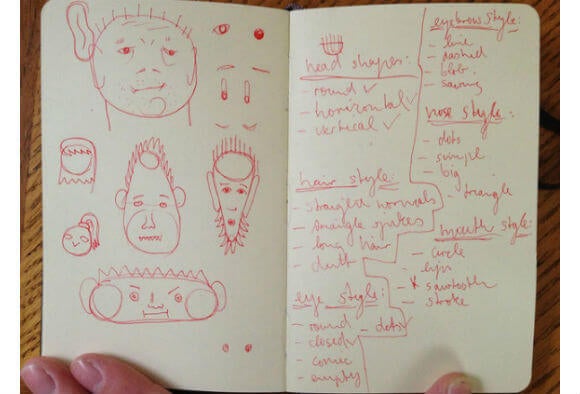 head shapes:
- round ✓
- horizontal ✓
- vertical ✓
hair style:
- straight normals
- triangle spikes
- long hair
eye style:
- round
- dots ✓
- closed ✓
- comic
- empty
eyebrow style:
- line
- dashed
- blob
nose style:
- dots
- simpl
- big
- triangle
mouth style:
- circle
- lips
x sawtooth
- stroke